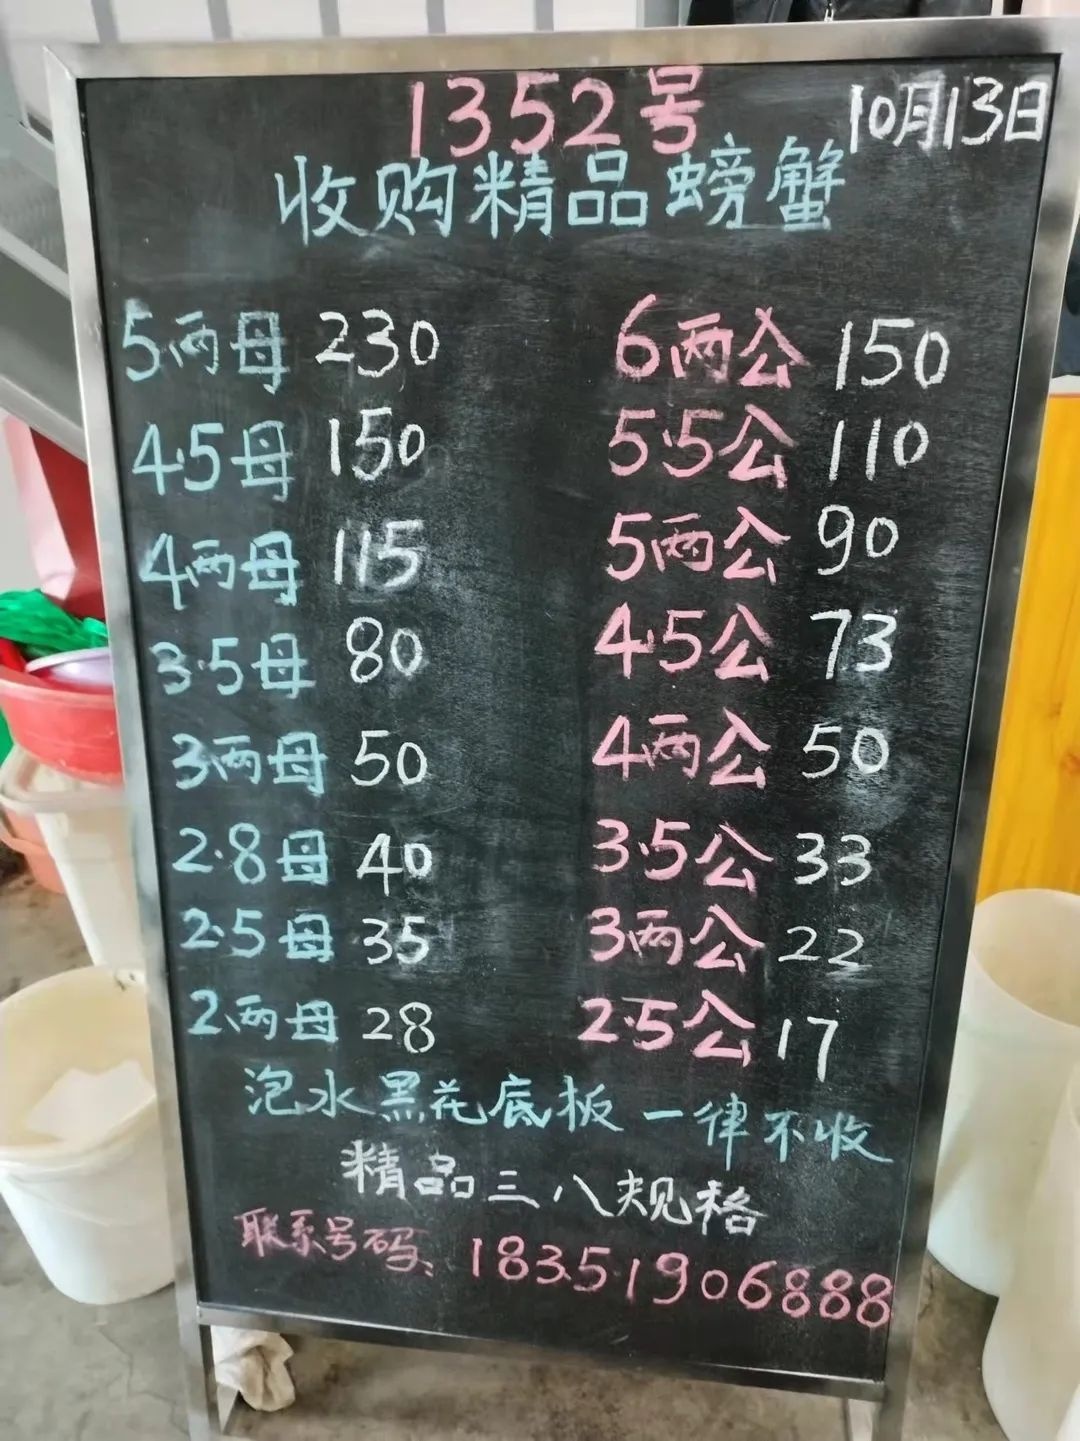 1352号 10月13日
收购精品螃蟹
5两母 230 6两公 150
4.5母 150 5.5公 110
4两母 115 5两公 90
3.5母 80 4.5公 73
3两母 50 4两公 50
2.8母 40 3.5公 33
2.5母 35 3两公 22
2两母 28 2.5公 17
泡水黑花底板一律不收
精品三八规格
联系号码：18351906888